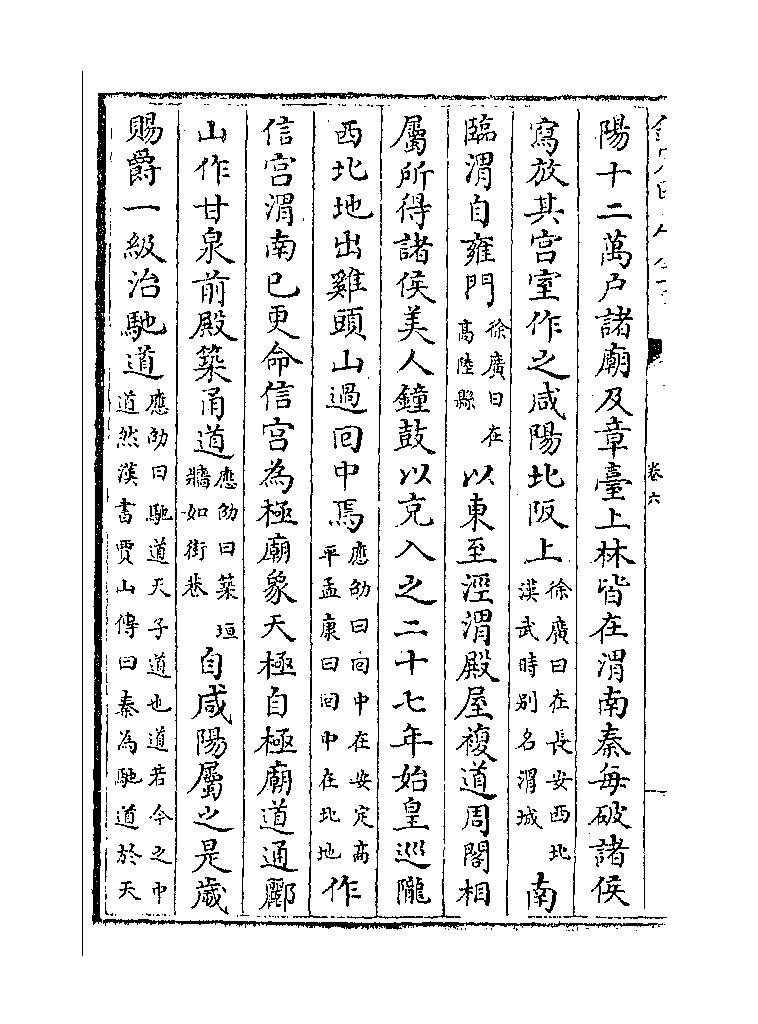 陽十二萬戶諸廟及章臺上林皆在渭南秦每破諸侯
寫放其宫室作之咸陽北阪上徐廣曰在長安西北漢武時别名渭城南
臨渭自雍門徐廣曰在高陸縣以東至涇渭殿屋複道周閣相
屬所得諸侯美人鐘鼓以充入之二十七年始皇巡隴
西北地出雞頭山過回中焉應劭曰回中在安定高平孟康曰回中在北地作
信宫渭南已更命信宫為極廟象天極自極廟道通酈
山作甘泉前殿築甬道應劭曰築垣牆如街巷自咸陽屬之是歲
賜爵一級治馳道應劭曰馳道天子道也道若今之中道然漢書賈山傳曰秦為馳道於天
卷六